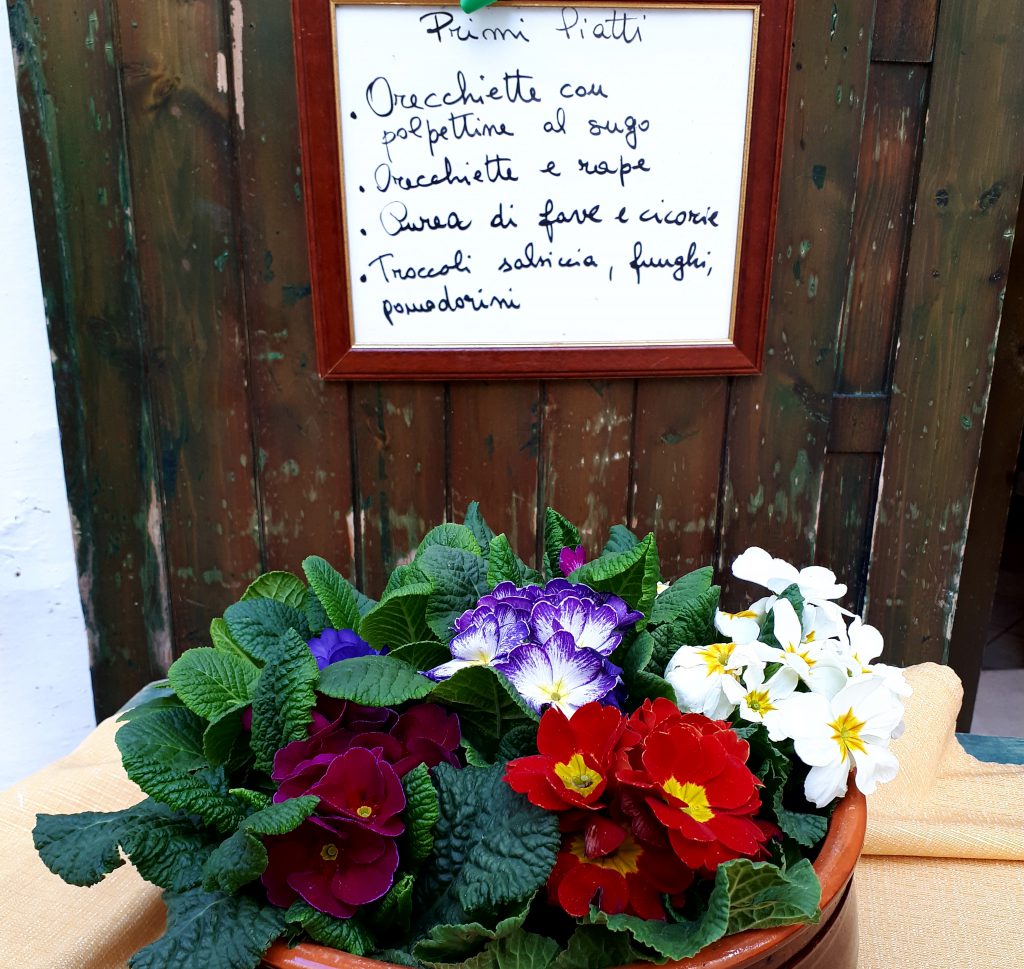 Primi Piatti
• Orecchiette con
polpettine al sugo
• Orecchiette e rape
• Purea di fave e cicorie
• Troccoli salsiccia, funghi,
pomodorini